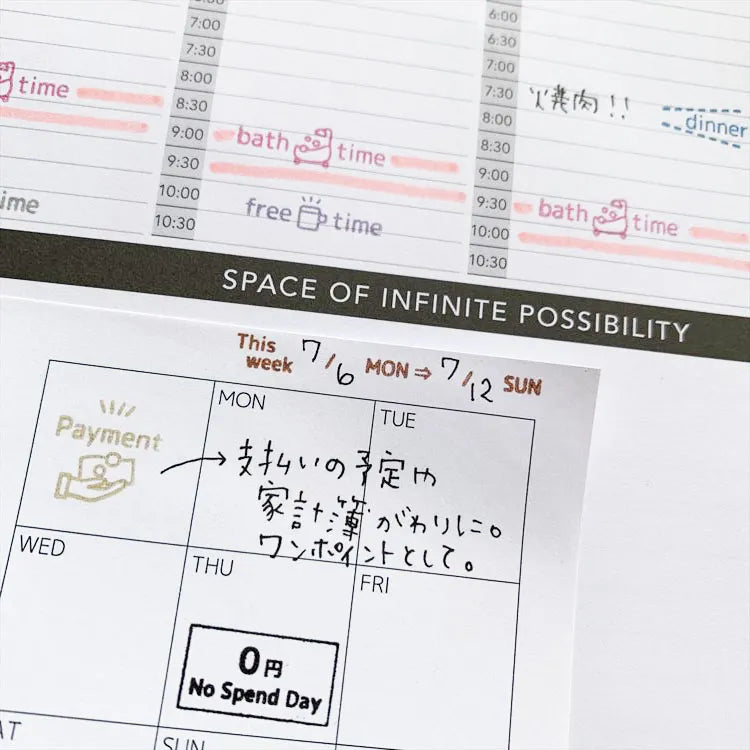 7:00
7:30
8:00
8:30
9:00
9:30
10:00
10:30
6:00
6:30
7:00
7:30
8:00
8:30
9:00
9:30
10:00
10:30
time
bath time
free time
焼肉!!
dinner
bath time
SPACE OF INFINITE POSSIBILITY
This week 7/6 MON ⇒ 7/12 SUN
Payment
MON
TUE
支払いの予定や
家計簿がわりに。
ワンポイントとして。
WED
THU
FRI
0円
No Spend Day
SUN